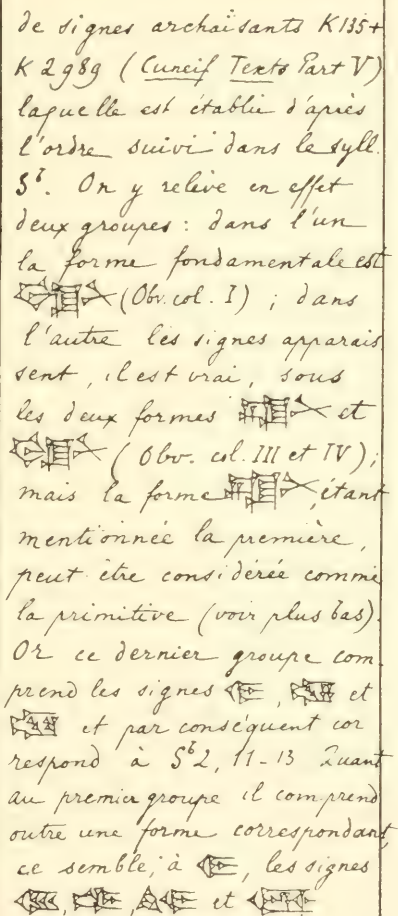 de signes archaïsants K135+
K 2989 (Cuneif Texts Part V)
laquelle est établie d'après
l'ordre suivi dans le syll.
Sᵇ. On y relève en effet
deux groupes : dans l'un
la forme fondamentale est
(Obv. col. I) ; dans
l'autre les signes apparais
sent, il est vrai, sous
les deux formes et
(Obv. col. III et IV);
mais la forme étant
mentionnée la première,
peut être considérée comme
la primitive (voir plus bas).
Or ce dernier groupe com
prend les signes , et
et par conséquent cor
respond à Sᵇ2, 11-13 Quant
au premier groupe il comprend
outre une forme correspondant,
ce semble, à , les signes
, , et